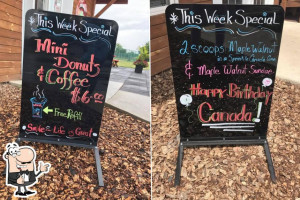 This Week Special
Mini
Donuts
& Coffee
$6.00
Free Refill
Smile - Life is Good!
This Week Special
2 scoops Maple Walnut
& Maple Walnut Sundae
Happy Birthday
Canada